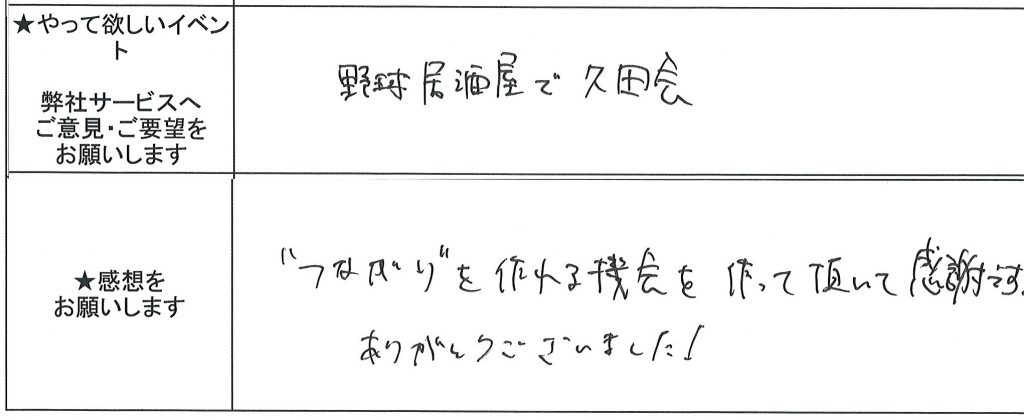 ★やって欲しいイベン
ト
弊社サービスへ
ご意見・ご要望を
お願いします
野球居酒屋で久田会
★感想を
お願いします
"つながり"を作れる機会を作って頂いて感謝です。
ありがとうございました!